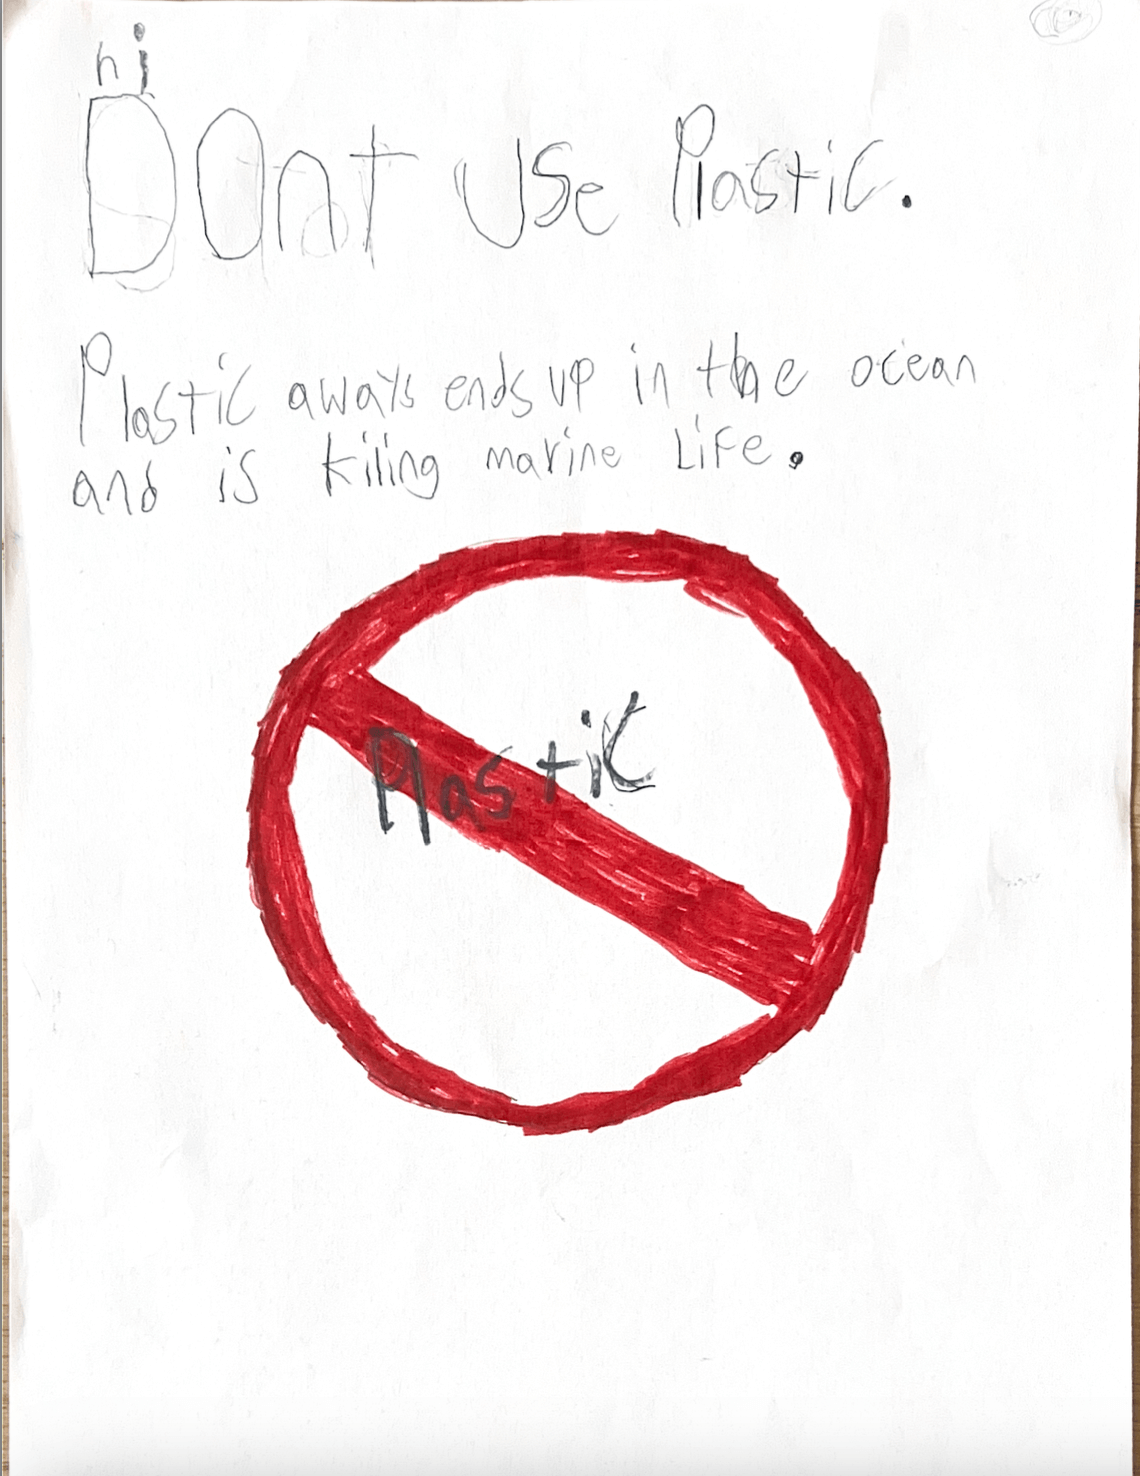 hi
DOnt USe Plastic.
Plastic aways ends up in the ocean
and is kiling marine Life.
Plastic